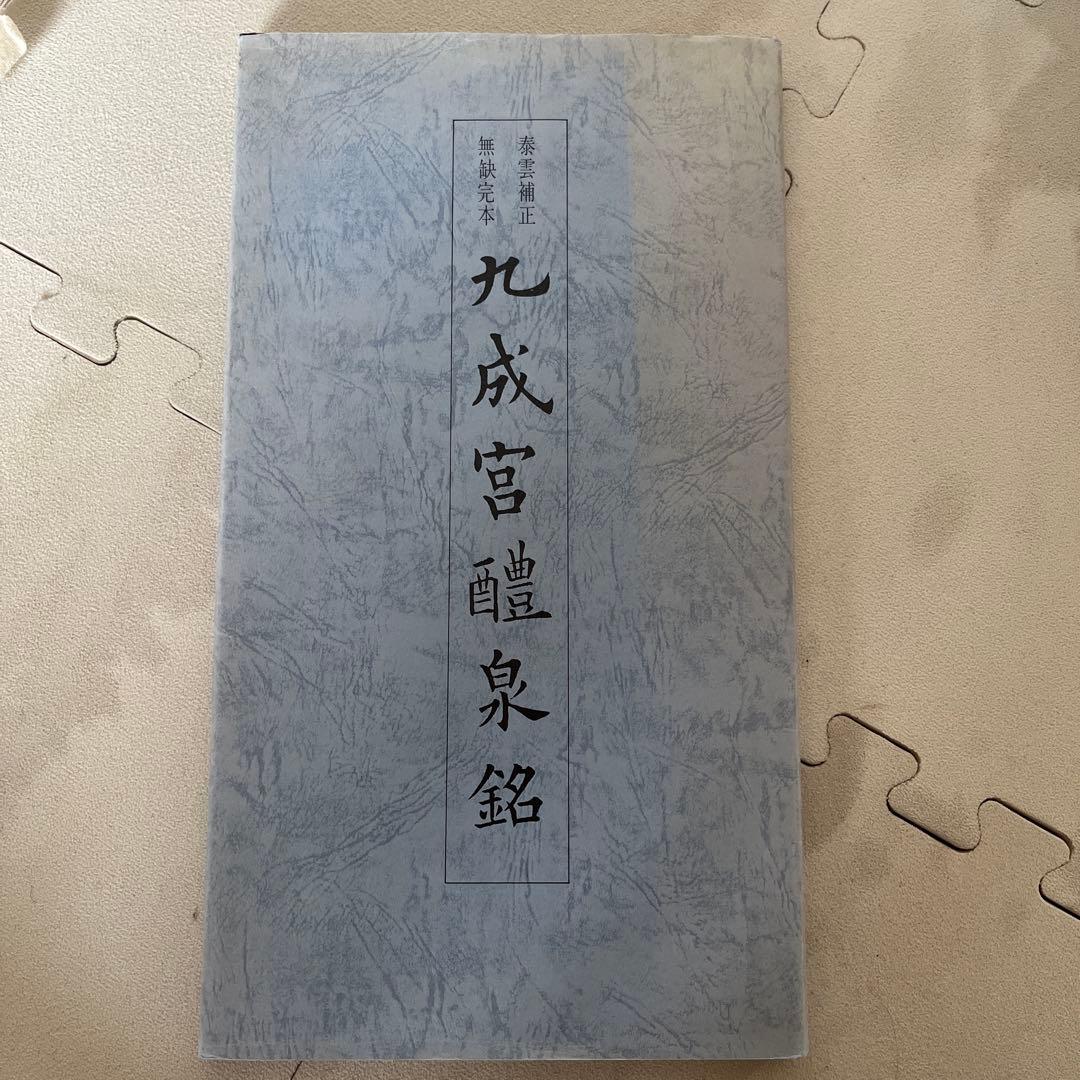 泰雲補正
無缺完本
九成宮醴泉銘